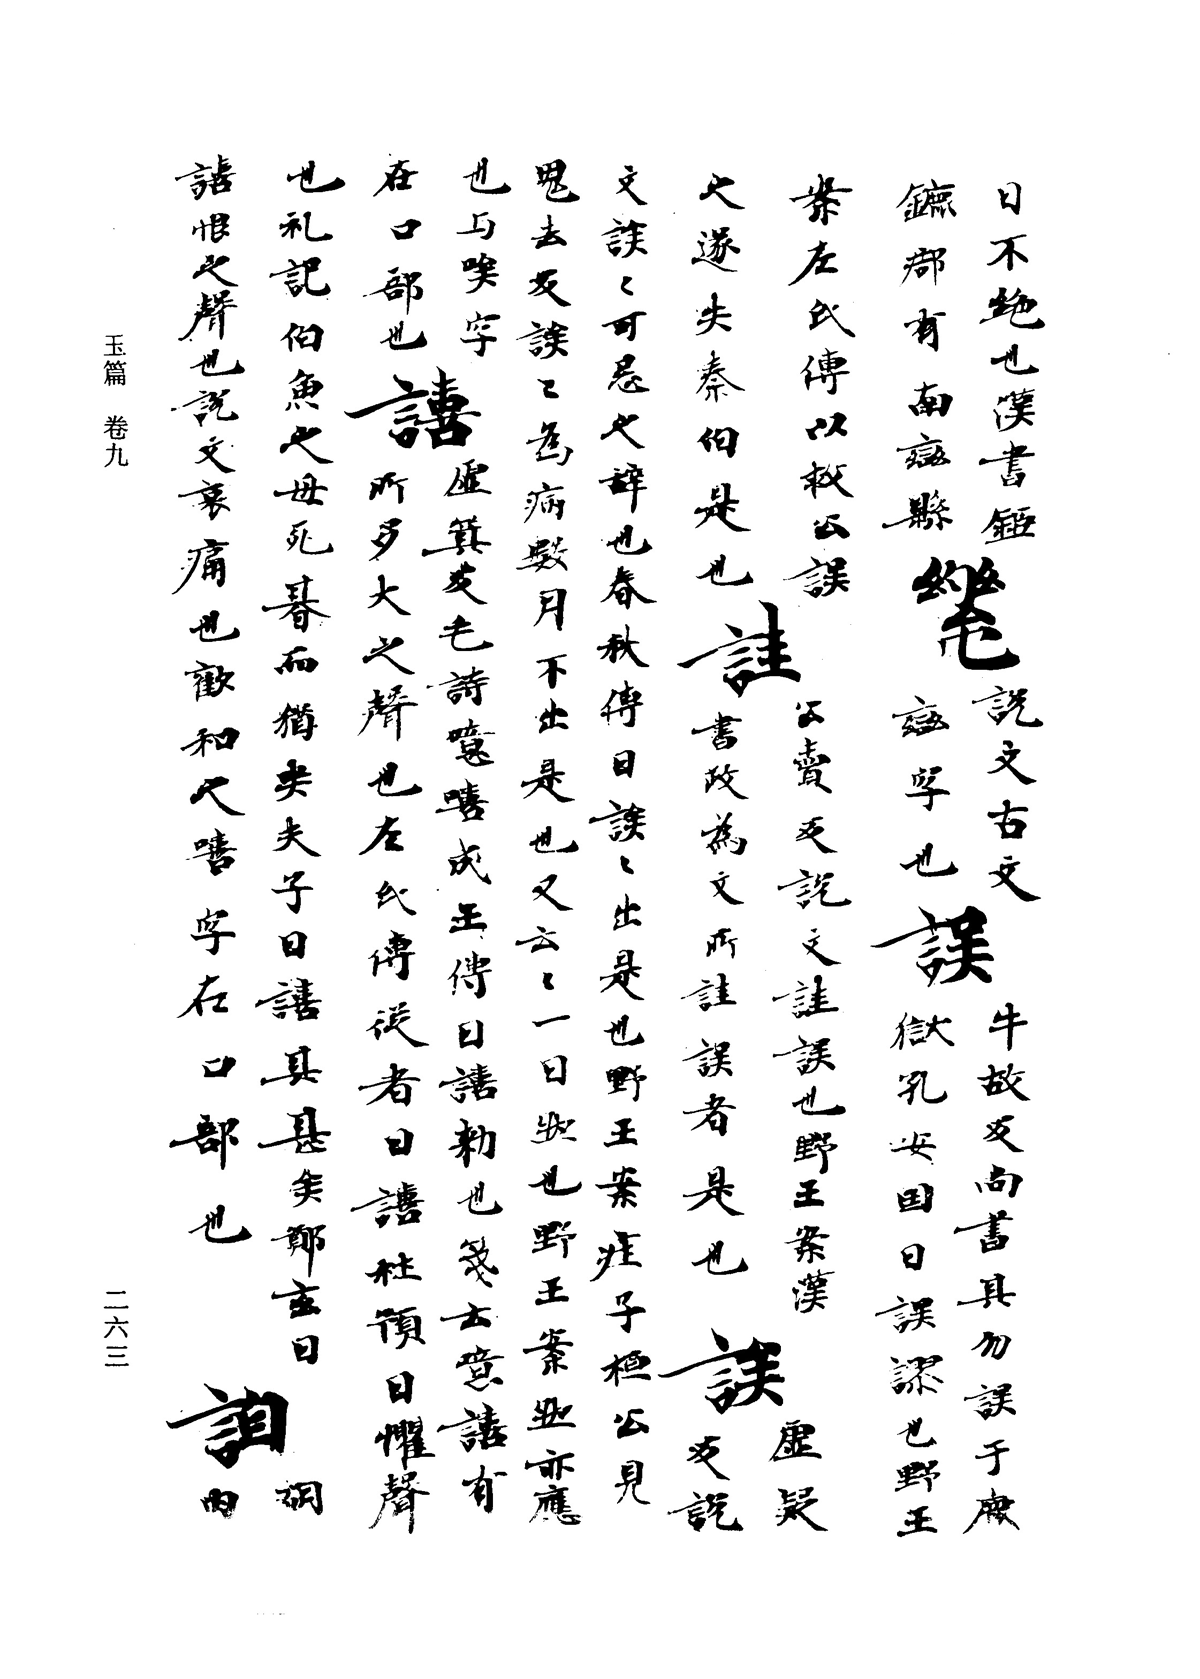 日不絶也漢書鉅
鏕郡有南䜌縣
説文古文
䜌字也
誤
牛故反尚書其勿誤于庶
獄孔安国曰誤謬也野王
案左氏傳以救公誤
之遂失秦伯是也
詿
公賣反説文詿誤也野王案漢
書政為文所詿誤者是也
誒
虚疑
反説
文誒〻可忌之辞也春秋傳曰誒〻出是也野王案疰子桓公見
鬼去反誒〻為病數月不出是也又云〻一曰然也野王案然亦應
也与唉字
在口部也
譆
虚箕反毛詩噫嘻成王傳曰譆勑也箋云噫譆有
所多大之聲也左氏傳從者曰譆杜預曰懼聲
也礼記伯魚之母死朞而猶哭夫子曰譆其甚矣鄭玄曰
譆恨之聲也説文哀痛也歡和之嘻字在口部也
詯
胡
内
玉篇 卷九
二六三